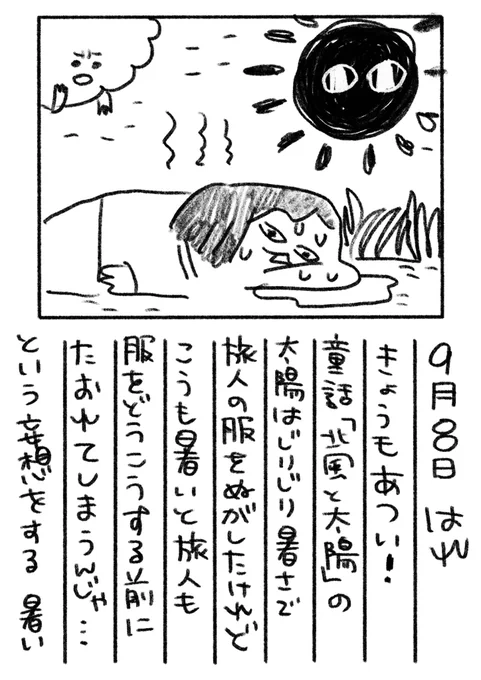 9月8日 はれ
きょうもあつい!
童話「北風と太陽」の
太陽はじりじり暑さで
旅人の服をぬがしたけれど
こうも暑いと旅人も
服をどうこうする前に
たおれてしまうんじゃ…
という妄想をする 暑い